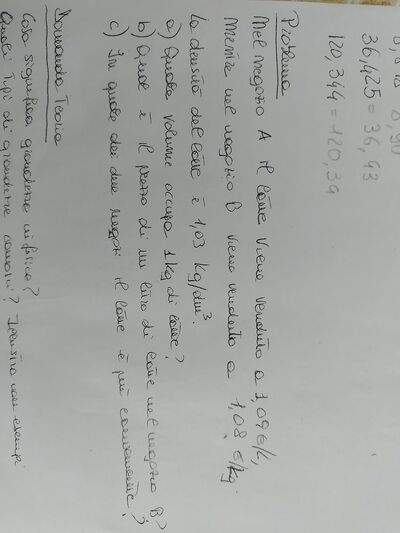 36,425 = 36,43
120,344 = 120,34
Problema
Nel negozio A il latte viene venduto a 1,09 €/L,
mentre nel negozio B viene venduto a 1,08 €/kg.
La densità del latte è 1,03 kg/dm³.
a) Quale volume occupa 1 kg di latte?
b) Qual è il prezzo di un litro di latte nel negozio B?
c) In quale dei due negozi il latte è più conveniente?
Domanda Teoria
Cosa significa grandezza in fisica?
Quali tipi di grandezze conosci? Illustra con esempi